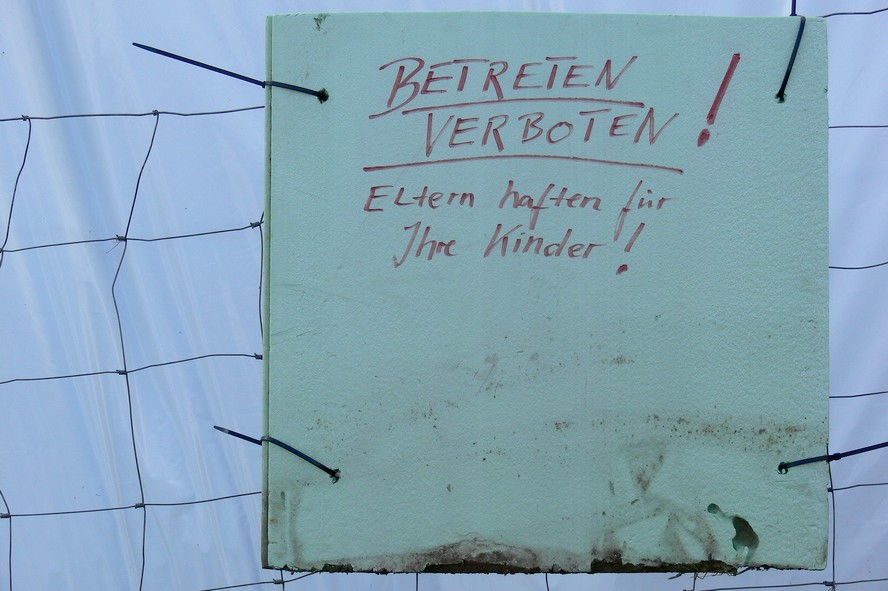 BETRETEN
VERBOTEN!
Eltern haften für
Ihre Kinder!